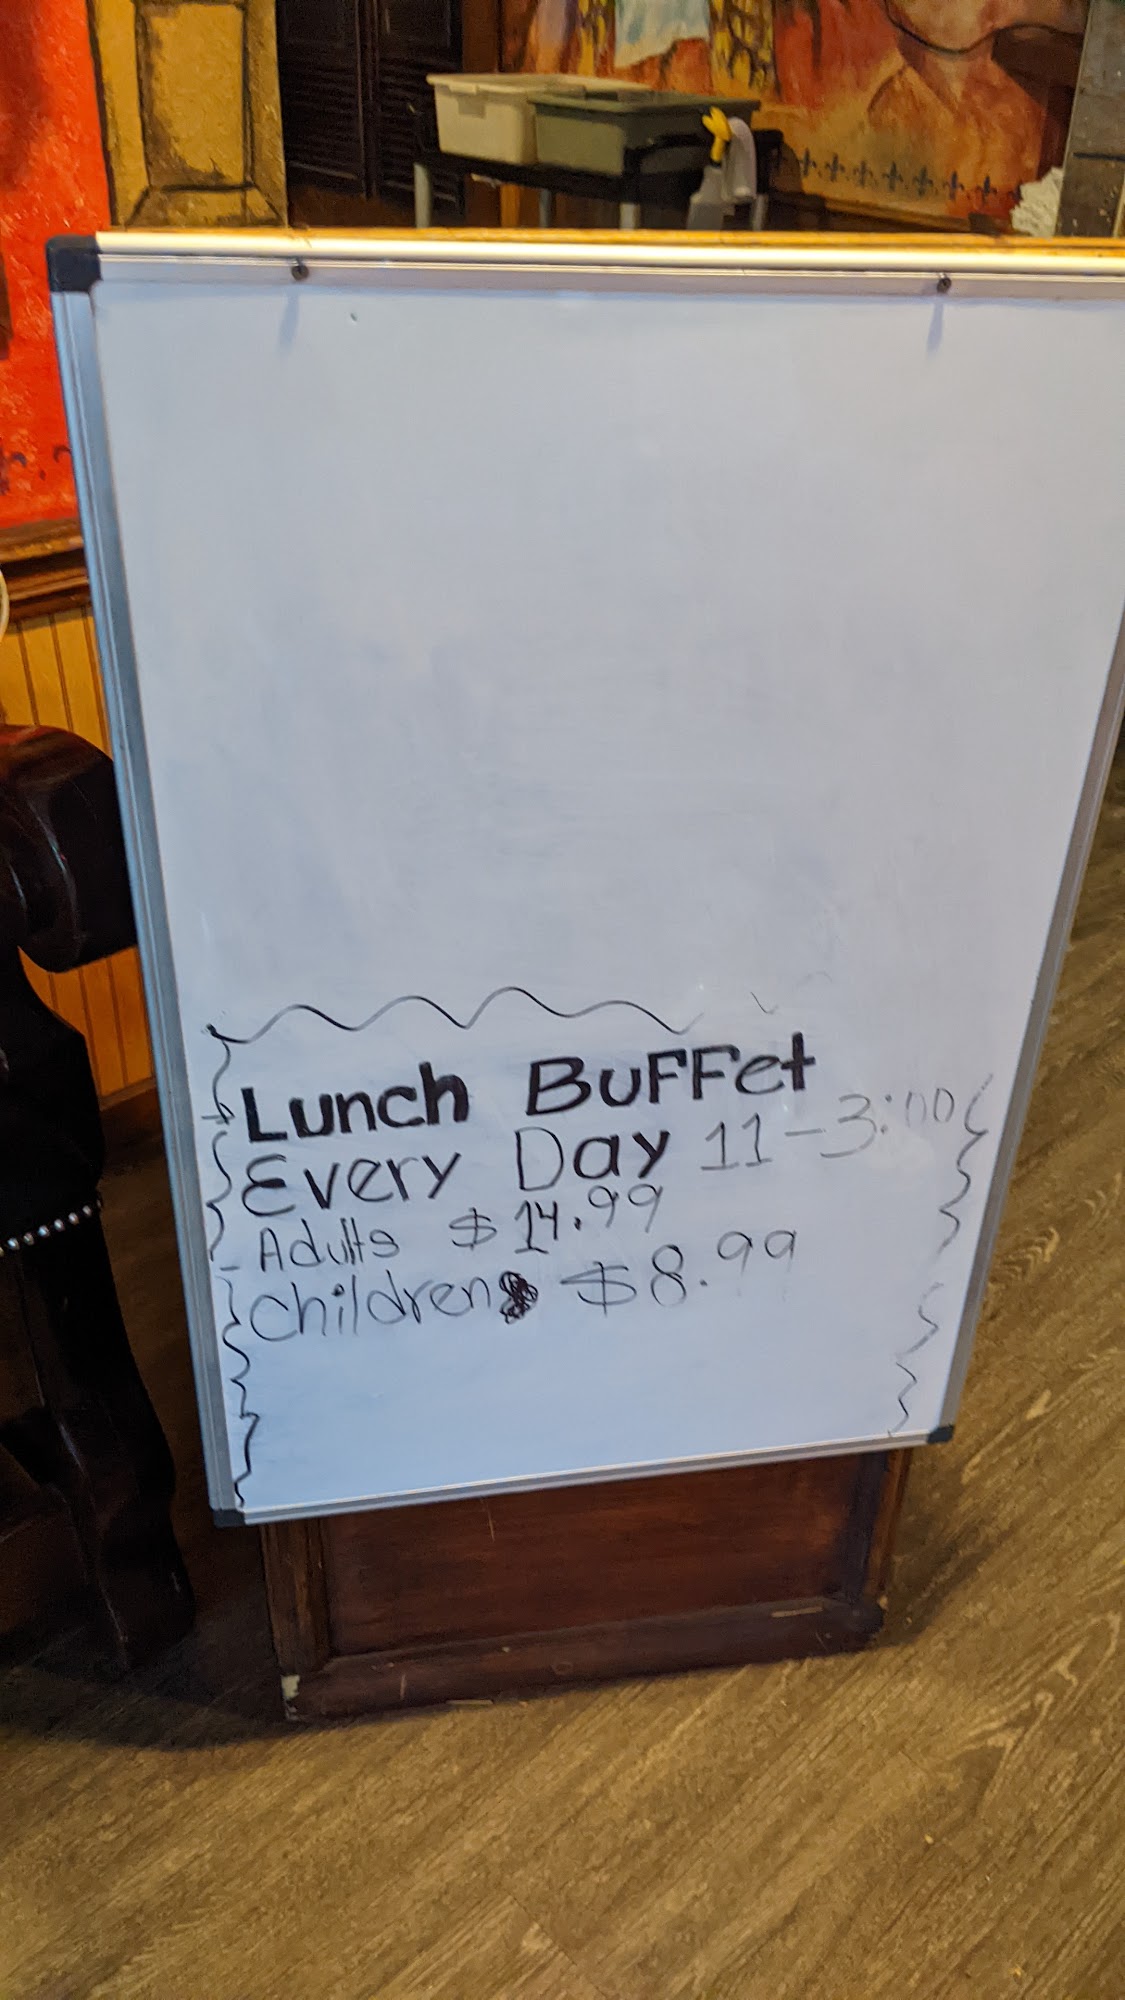 Lunch BuFFet
Every Day 11-3:00
Adults $14.99
Children $8.99